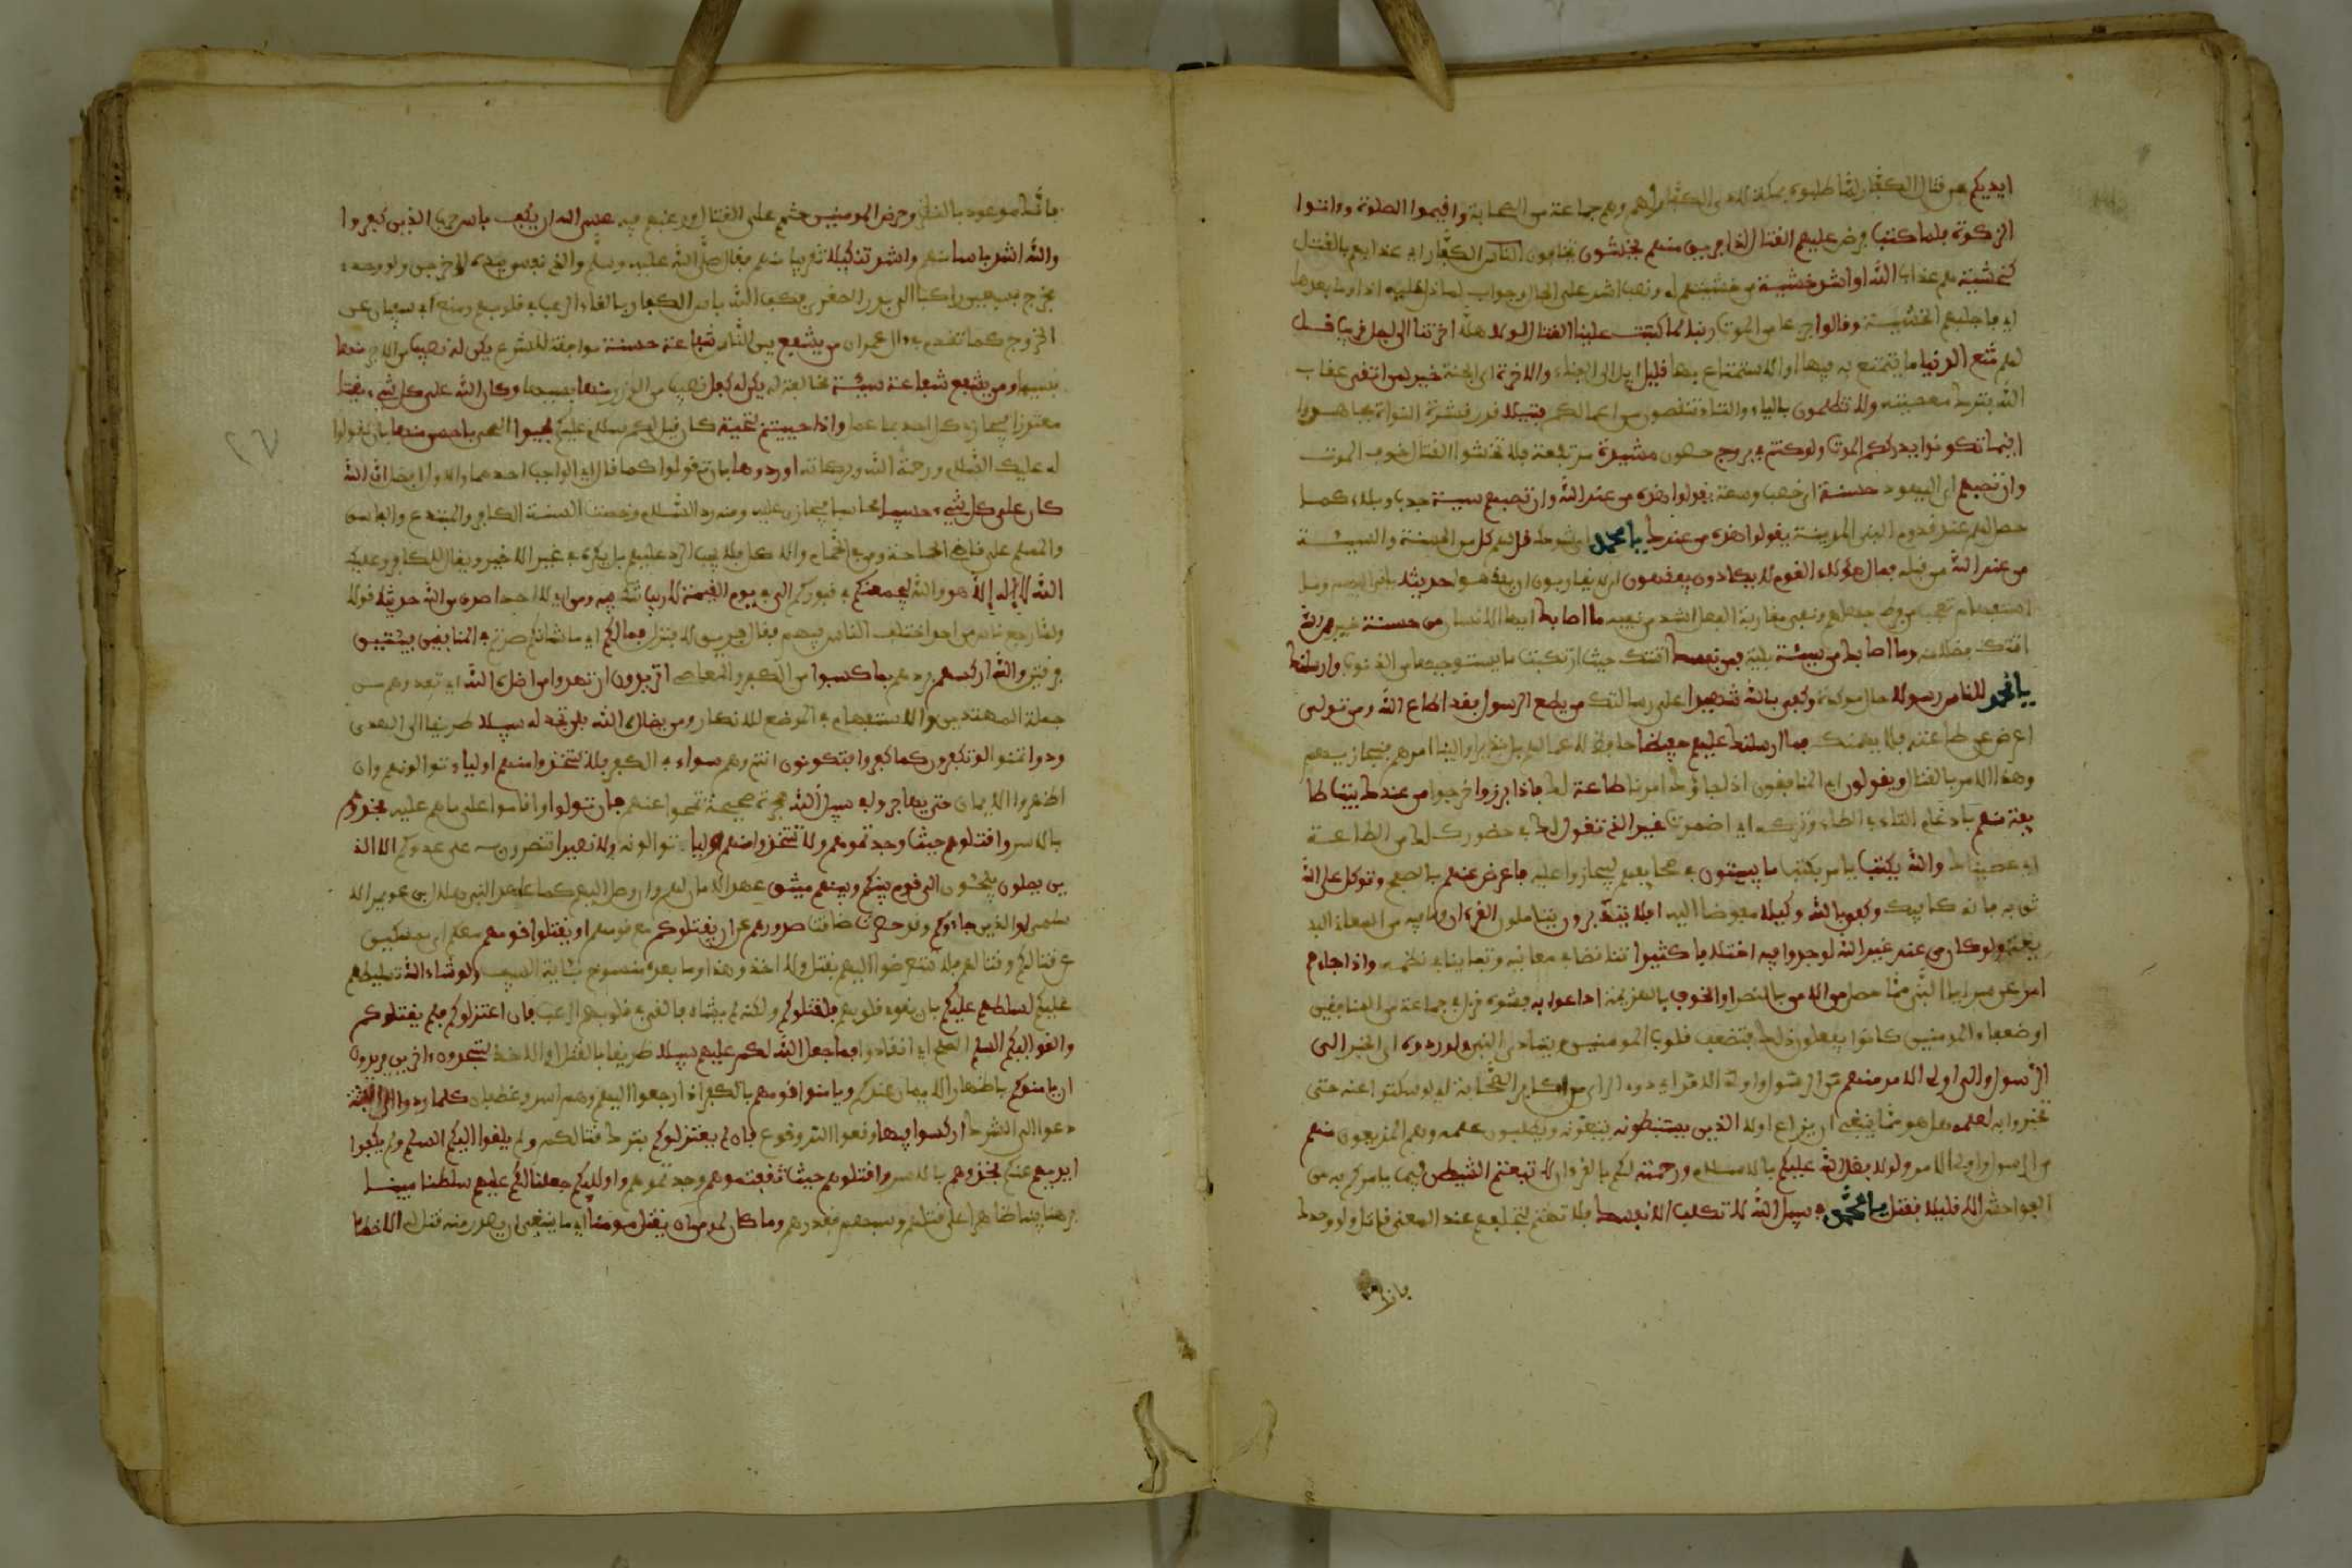 ايديكم عن قتال الكفار لما طلبوه بمكة لاذى الكفار لهم وهم جماعة من الصحابة واقيموا الصلوة وءاتوا
الزكوة فلما كتب فرض عليهم القتال اذا فريق منهم يخشون يخافون الناس الكفار اي عذابهم بالقتل
كخشية هم عذاب الله او اشد خشية من خشيتهم له ونصب اشد على الحال وجواب لما دل عليه اذا وما بعدها
اي فاجاهم الخشية وقالوا جزعا من الموت ربنا لم كتبت علينا القتال لولا هلا اخرتنا الى اجل قريب قل
لهم متع الدنيا ما يتمتع به فيها او الاستمتاع بها قليل ايل الى الفناء والاخرة اي الجنة خير لمن اتقى عقاب
الله بترك معصيته ولا تظلمون بالياء والتاء تنقصون من اعمالكم فتيلا قدر قشرة النواة فجاهدوا
اينما تكونوا يدرككم الموت ولو كنتم في بروج حصون مشيدة مرتفعة فلا تخشوا القتال خوف الموت
وان تصبهم اي اليهود حسنة اي خصب وسعة يقولوا هذه من عند الله وان تصبهم سيئة جدب وبلاء كما
حصل لهم عند قدوم النبي المدينة يقولوا هذه من عندك يا محمد اي بشومك قل لهم كل من الحسنة والسيئة
من عند الله من قبله فمال هؤلاء القوم لا يكادون يفقهون اي لا يقاربون ان يفهموا حديثا يلقى اليهم وما
استفهام تعجب من فرط جهلهم ونفي مقاربة الفعل اشد من نفيه ما اصابك ايها الانسان من حسنة خير فمن الله
اتتك فضلا منه وما اصابك من سيئة بلية فمن نفسك اتتك حيث ارتكبت ما يستوجبها من الذنوب وارسلنك
يا محمد للناس رسولا حال موكدة وكفى بالله شهيدا على رسالتك من يطع الرسول فقد اطاع الله ومن تولى
اعرض عن طاعته فلا يهمنك فما ارسلنك عليهم حفيظا حافظا لاعمالهم بل نذيرا والينا امرهم فنجازيهم
وهذا قبل الامر بالقتال ويقولون اي المنافقون اذا جاؤك امرنا طاعة لك فاذا برزوا خرجوا من عندك بيت طا
يفة منهم بادغام التاء في الطاء وتركه اي اضمرت غير الذي تقول لك في حضورك من الطاعة
اي عصيانك والله يكتب يامر بكتب ما يبيتون في صحايفهم ليجازوا عليه فاعرض عنهم بالصفح وتوكل على الله
ثق به فانه كافيك وكفى بالله وكيلا مفوضا اليه افلا يتدبرون يتاملون القرءان وما فيه من المعاني البد
يعة ولو كان من عند غير الله لوجدوا فيه اختلافا كثيرا تناقضا في معانيه وتباينا في نظمه واذا جاءهم
امر عن سرايا النبي مما حصل من الامن بالنصر او الخوف بالهزيمة اذاعوا به افشوه نزل في جماعة من المنافقين
او ضعفاء المومنين كانوا يفعلون ذلك فتضعف قلوب المومنين ويتاذى النبي ولو ردوه اي الخبر الى
الرسول والى اولي الامر منهم ذوي الراي من اكابر الصحابة اي لو سكتوا عنه حتى
يخبروا به لعلمه هل هو مما ينبغي ان يذاع اولا الذين يستنبطونه يتبعونه ويطلبون علمه وهم المذيعون منهم
من الرسول واولي الامر ولولا فضل الله عليكم بالاسلام ورحمته لكم بالقرءان لاتبعتم الشيطن فيما يامركم به من
الفواحش الا قليلا فقتل يا محمد في سبيل الله لا تكلف الا نفسك فلا تهتم بتخلفهم عنك المعنى قاتل ولو وحدك
فانك
فانك موعود بالنصر وحرض المومنين حثهم على القتال ورغبهم فيه عسى الله ان يكف باس حرب الذين كفروا
والله اشد باسا منهم واشد تنكيلا تعذيبا منهم فقال صلى الله عليه وسلم والذي نفسي بيده لاخرجن ولو وحدي
فخرج بسبعين راكبا الى بدر الصغرى فكف الله باس الكفار بالقاء الرعب في قلوبهم ومنع ابي سفيان عن
الخروج كما تقدم في ءال عمران من يشفع بين الناس شفاعة حسنة موافقة للشرع يكن له نصيب من الاجر منها
بسببها ومن يشفع شفاعة سيئة مخالفة له يكن له كفل نصيب من الوزر منها بسببها وكان الله على كل شيء مقيتا
مقتدرا فيجازي كل احد بما عمل واذا حييتم بتحية كان قيل لكم سلام عليكم فحيوا المحيي باحسن منها بان تقولوا
له عليك السلام ورحمة الله وبركاته او ردوها بان تقولوا كما قال اي الواجب احدهما والاول افضل ان الله
كان على كل شيء حسيبا محاسبا فيجازي عليه ومنه رد السلام وخصت السنة الكافر والمبتدع والفاسق
والمسلم على قاضي الحاجة ومن في الحمام والاكل فلا يجب الرد عليهم بل يكره في غير الاخير ويقال للكافر وعليك
الله لا اله الا هو والله ليجمعنكم في قبوركم الى في يوم القيمة لا ريب شك فيه ومن اي لا احد اصدق من الله حديثا قولا
ولما رجع ناس من احد اختلف الناس فيهم فقال فريق اقتلهم وقال فريق لا فنزل فمالكم اي ما شانكم صرتم في المنافقين فئتين
فرقتين والله اركسهم ردهم بما كسبوا من الكفر والمعاصي اتريدون ان تهدوا من اضل الله اي تعدوهم من
جملة المهتدين والاستفهام في الموضعين للانكار ومن يضلل الله فلن تجد له سبيلا طريقا الى الهدى
ودوا تمنوا لو تكفرون كما كفروا فتكونون انتم وهم سواء في الكفر فلا تتخذوا منهم اولياء توالونهم وان
اظهروا الايمان حتى يهاجروا في سبيل الله هجرة صحيحة تحقق ايمانهم فان تولوا واقاموا على ما هم عليه فخذوهم
بالاسر واقتلوهم حيث وجدتموهم ولا تتخذوا منهم وليا توالونه ولا نصيرا تنتصرون به على عدوكم الا الذ
ين يصلون يلجئون الى قوم بينكم وبينهم ميثق عهد بالامان لهم ولمن وصل اليهم كما عاهد النبي هلال بن عويمر الا
سلمي او الذين جاءوكم وقد حصرت ضاقت صدورهم عن ان يقتلوكم مع قومهم او يقتلوا قومهم معكم اي ممسكين
عن قتالكم وقتالهم فلا تتعرضوا اليهم بقتل ولا اخذ وهذا وما بعده منسوخ بئاية السيف ولو شاء الله تسليطهم
عليكم لسلطهم عليكم بان يقوي قلوبهم فلقتلوكم ولكنه لم يشاه فالقى في قلوبهم الرعب فان اعتزلوكم فلم يقتلوكم
والقوا اليكم السلم الصلح اي انقادوا فما جعل الله لكم عليهم سبيلا طريقا بالقتل او الاخذ ستجدون ءاخرين يريدون
ان يامنوكم باظهار الايمان عندكم ويامنوا قومهم بالكفر اذا رجعوا اليهم وهم اسد وغطفان كلما ردوا الى الفتنة
دعوا الى الشرك اركسوا فيها وقعوا اشد وقوع فان لم يعتزلوكم بترك قتالكم ولم يلقوا اليكم السلم ولم يكفوا
ايديهم عنكم فخذوهم بالاسر واقتلوهم حيث ثقفتموهم وجدتموهم واولئكم جعلنا لكم عليهم سلطنا مبينا
برهنا بينا ظاهرا على قتلهم وسبيهم لغدرهم وما كان لمومن ان يقتل مومنا اي ما ينبغي ان يصدر منه قتل له الا خطئا